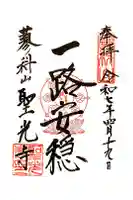 奉拝 令和七年四月十九日
一路安穏
蓼科山聖光寺